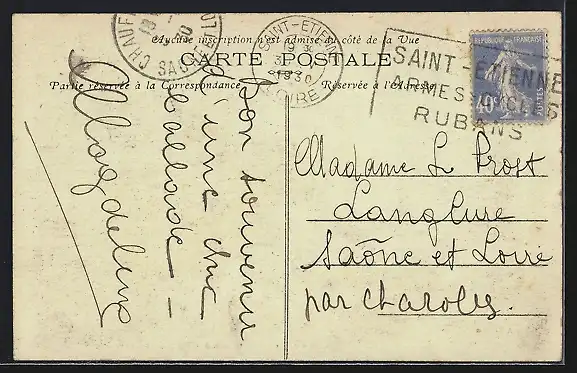 Aucune inscription n'est admise du côté de la Vue
CARTE POSTALE
Partie réservée à la Correspondance
Réservée à l'Adresse
SAINT-ETIENNE
1930
LOIRE
SAINT-ETIENNE
ARMES CYCLES
RUBANS
REPUBLIQUE FRANCAISE
40c
POSTES
CHAUF
Bon souvenir
d'une chic
ballade —
Magdeleine
Madame L Prost
Langlure
Saône et Loire
par Charoles.